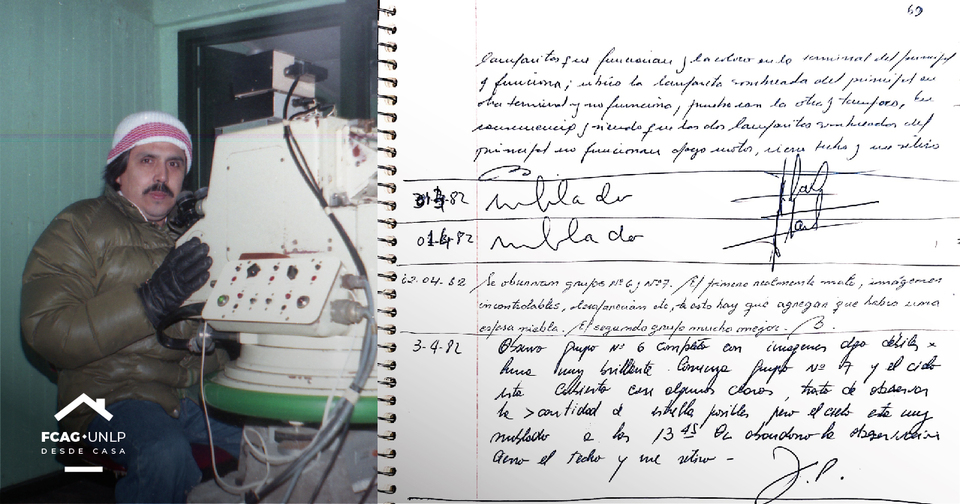 69
lamparitas que funcionan y la coloco en la terminal del principal
y funciona; ubico la lamparita sombreada del principal en
otra terminal y no funciona, pruebo con la otra y tampoco, en
consecuencia y siendo que las dos lamparitas sombreadas del
principal no funcionan apago motor, cierro techo y me retiro
31-3-82 nublado
01-4-82 nublado
02.04.82 Se observan grupos Nº6 y Nº7. El primero realmente malo, imágenes
incontrolables, desaparecían etc, a esto hay que agregar que había una
espesa niebla. El segundo grupo mucho mejor.
3-4-82 Observo grupo Nº 6 completo con imagenes algo débiles x
luna muy brillante. Comienza grupo Nº 7 y el cielo
está cubierto con algunos claros, trato de observar
la > cantidad de estrellas posibles pero el cielo esta muy
nublado a las 13 45 abandono la observación
cierro el techo y me retiro -
J.P.
FCAG•UNLP
DESDE CASA